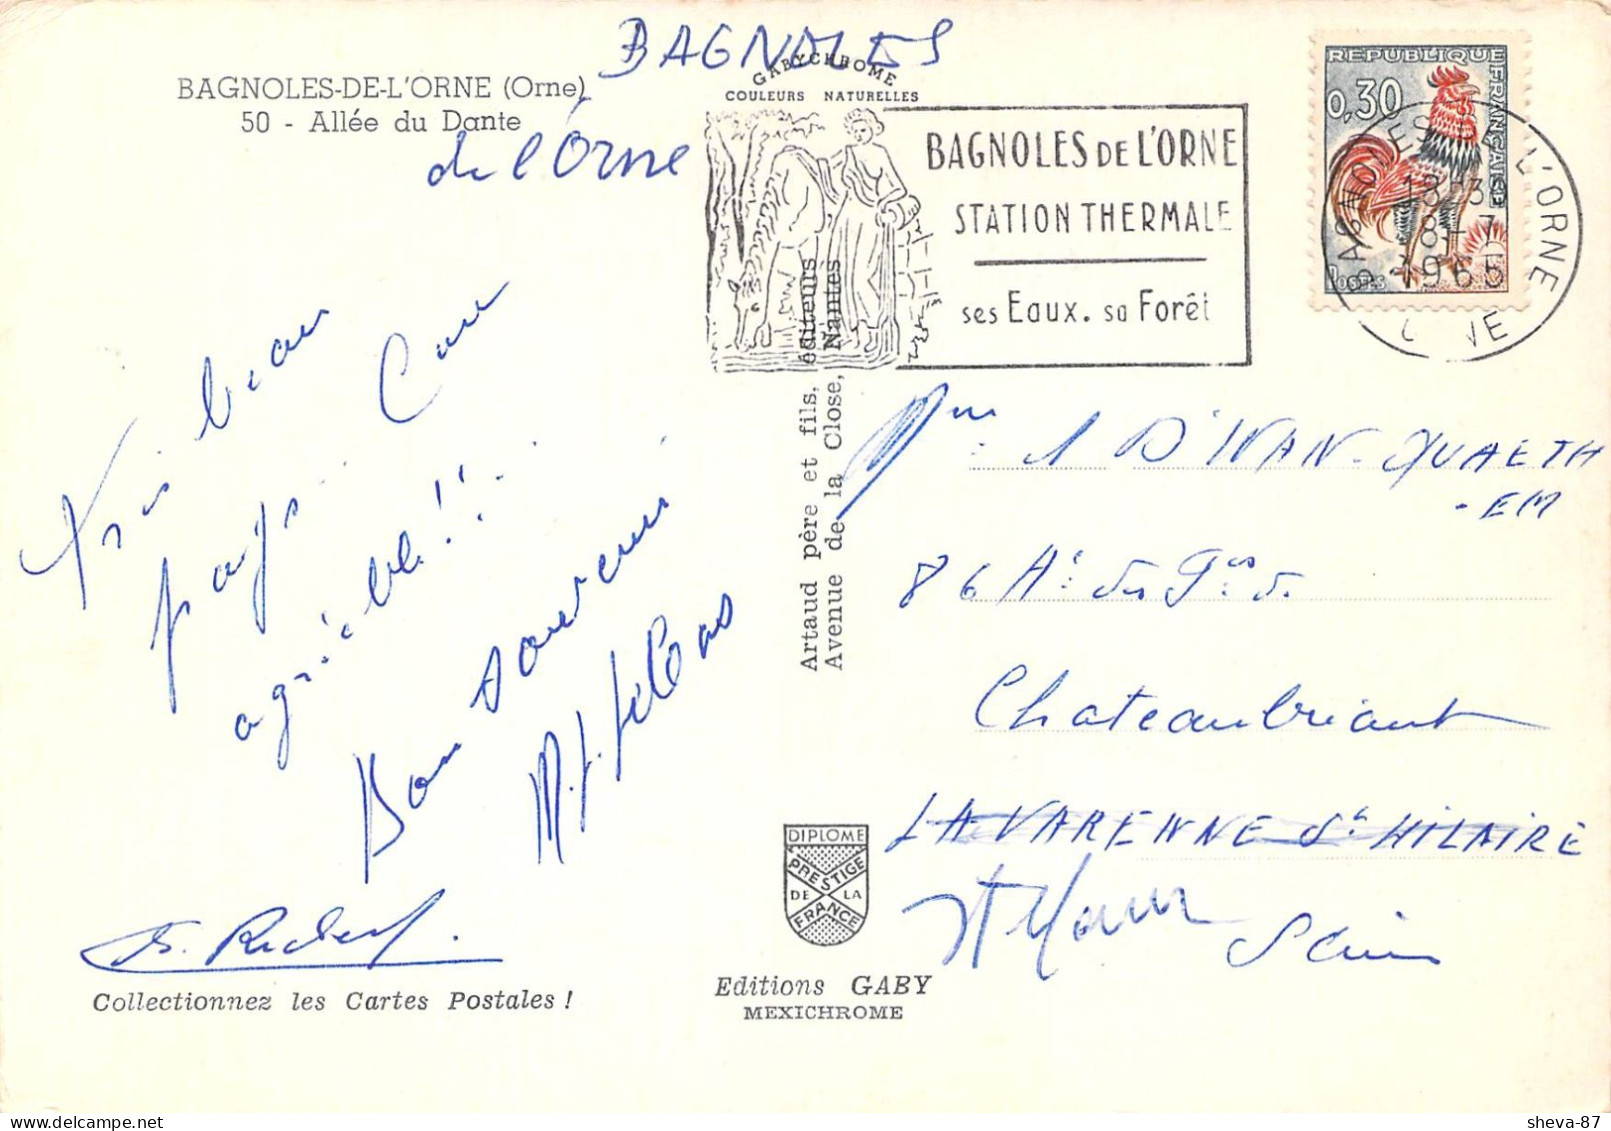 BAGNOLES
de l'Orne
BAGNOLES-DE-L'ORNE (Orne)
50 - Allée du Dante
GABYCHROME
COULEURS NATURELLES
BAGNOLES DE L'ORNE
STATION THERMALE
ses Eaux. sa Forêt
REPUBLIQUE FRANÇAISE
0,30
POSTES
BAGNOLES DE L'ORNE
18 H 3
8 - 7
1965
ORNE
Très beau
pays
agréable!!
Bon souvenir
Collectionnez les Cartes Postales !
Artaud père et fils, éditeurs
Avenue de la Close, Nantes
DIPLOME
PRESTIGE
DE LA
FRANCE
Editions GABY
MEXICHROME
Mme
D'IVAN-QUAETH
-EM
86 A. du Gal de
Chateaubriant
LA VARENNE St HILAIRE
St Maur Seine
sheva-87